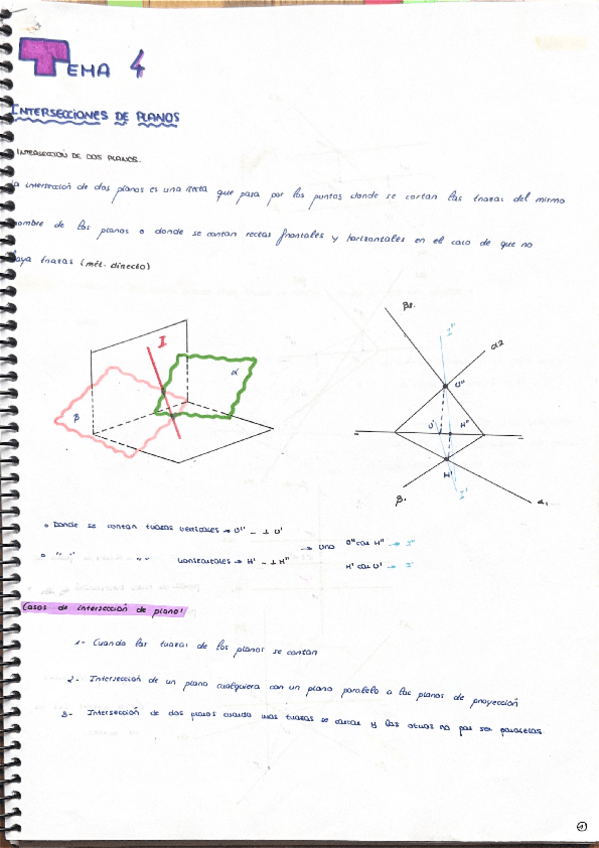 TEMA 4
INTERSECCIONES DE PLANOS
INTERSECCIÓN DE DOS PLANOS.
a intersección de dos planos es una recta que pasa por los puntos donde se cortan las trazas del mismo
nombre de los planos o donde se cortan rectas frontales y horizontales en el caso de que no
haya trazas (mét. directo)
I
α
β
β2
I''
α2
U''
U'
H''
H'
I'
β1
α1
Donde se cortan trazas verticales → U'' - ⊥ U'
" " " " horizontales → H' - ⊥ H''
→ uno U'' con H'' → I''
H' con U' → I'
Casos de intersección de plano:
1- Cuando las trazas de los planos se cortan
2- Intersección de un plano cualquiera con un plano paralelo a los planos de proyección
3- Intersección de dos planos cuando unas trazas se cortan y las otras no por ser paralelas
1